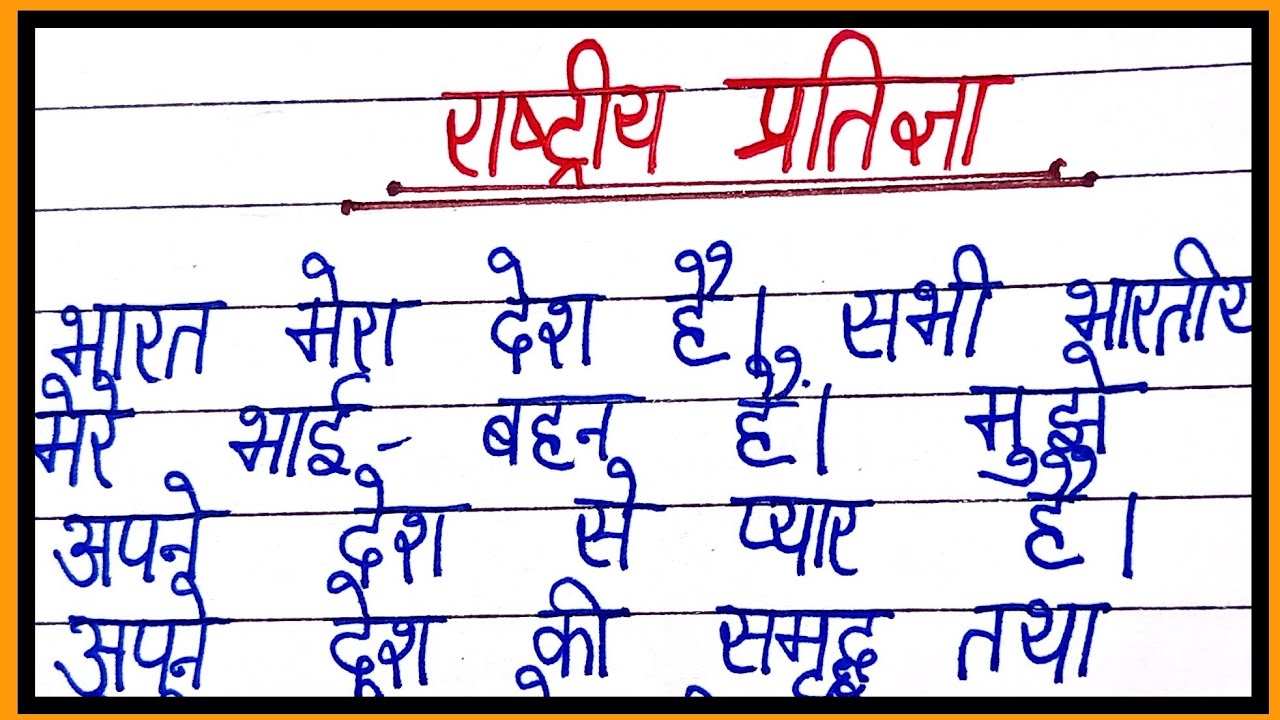 राष्ट्रीय प्रतिज्ञा
भारत मेरा देश है। सभी भारतीय
मेरे भाई- बहन हैं। मुझे
अपने देश से प्यार है।
अपने देश की समृद्ध तथा